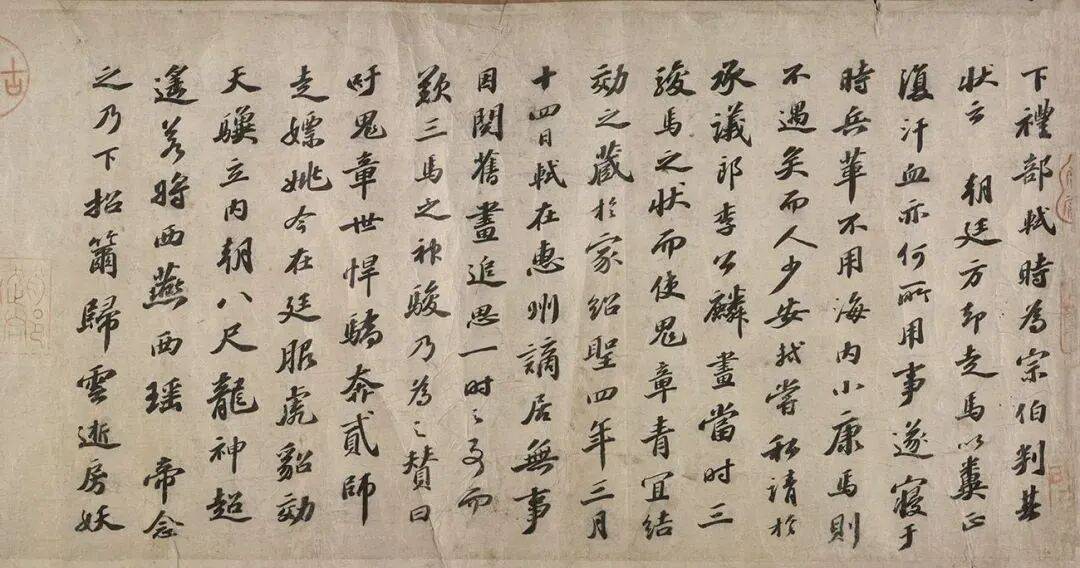 下禮部軾時為宗伯判其
狀云 朝廷方却走馬以糞正
復汗血亦何所用事遂寢于
時兵革不用海内小康馬則
不遇矣而人少安軾嘗私請於
承議郎李公麟畫當時三
駿馬之状而使鬼章青宜結
効之藏於家紹聖四年三月
十四日軾在惠州謫居無事
因閱舊畫追思一時之事而
歎三馬之神駿乃為之贊曰
吁鬼章世悍驕奔貳師
走嫖姚今在廷服虎貂効
天驥立内朝八尺龍神超
遙若將西燕西瑶 帝念
之乃下招籋歸雲逝房妖
古